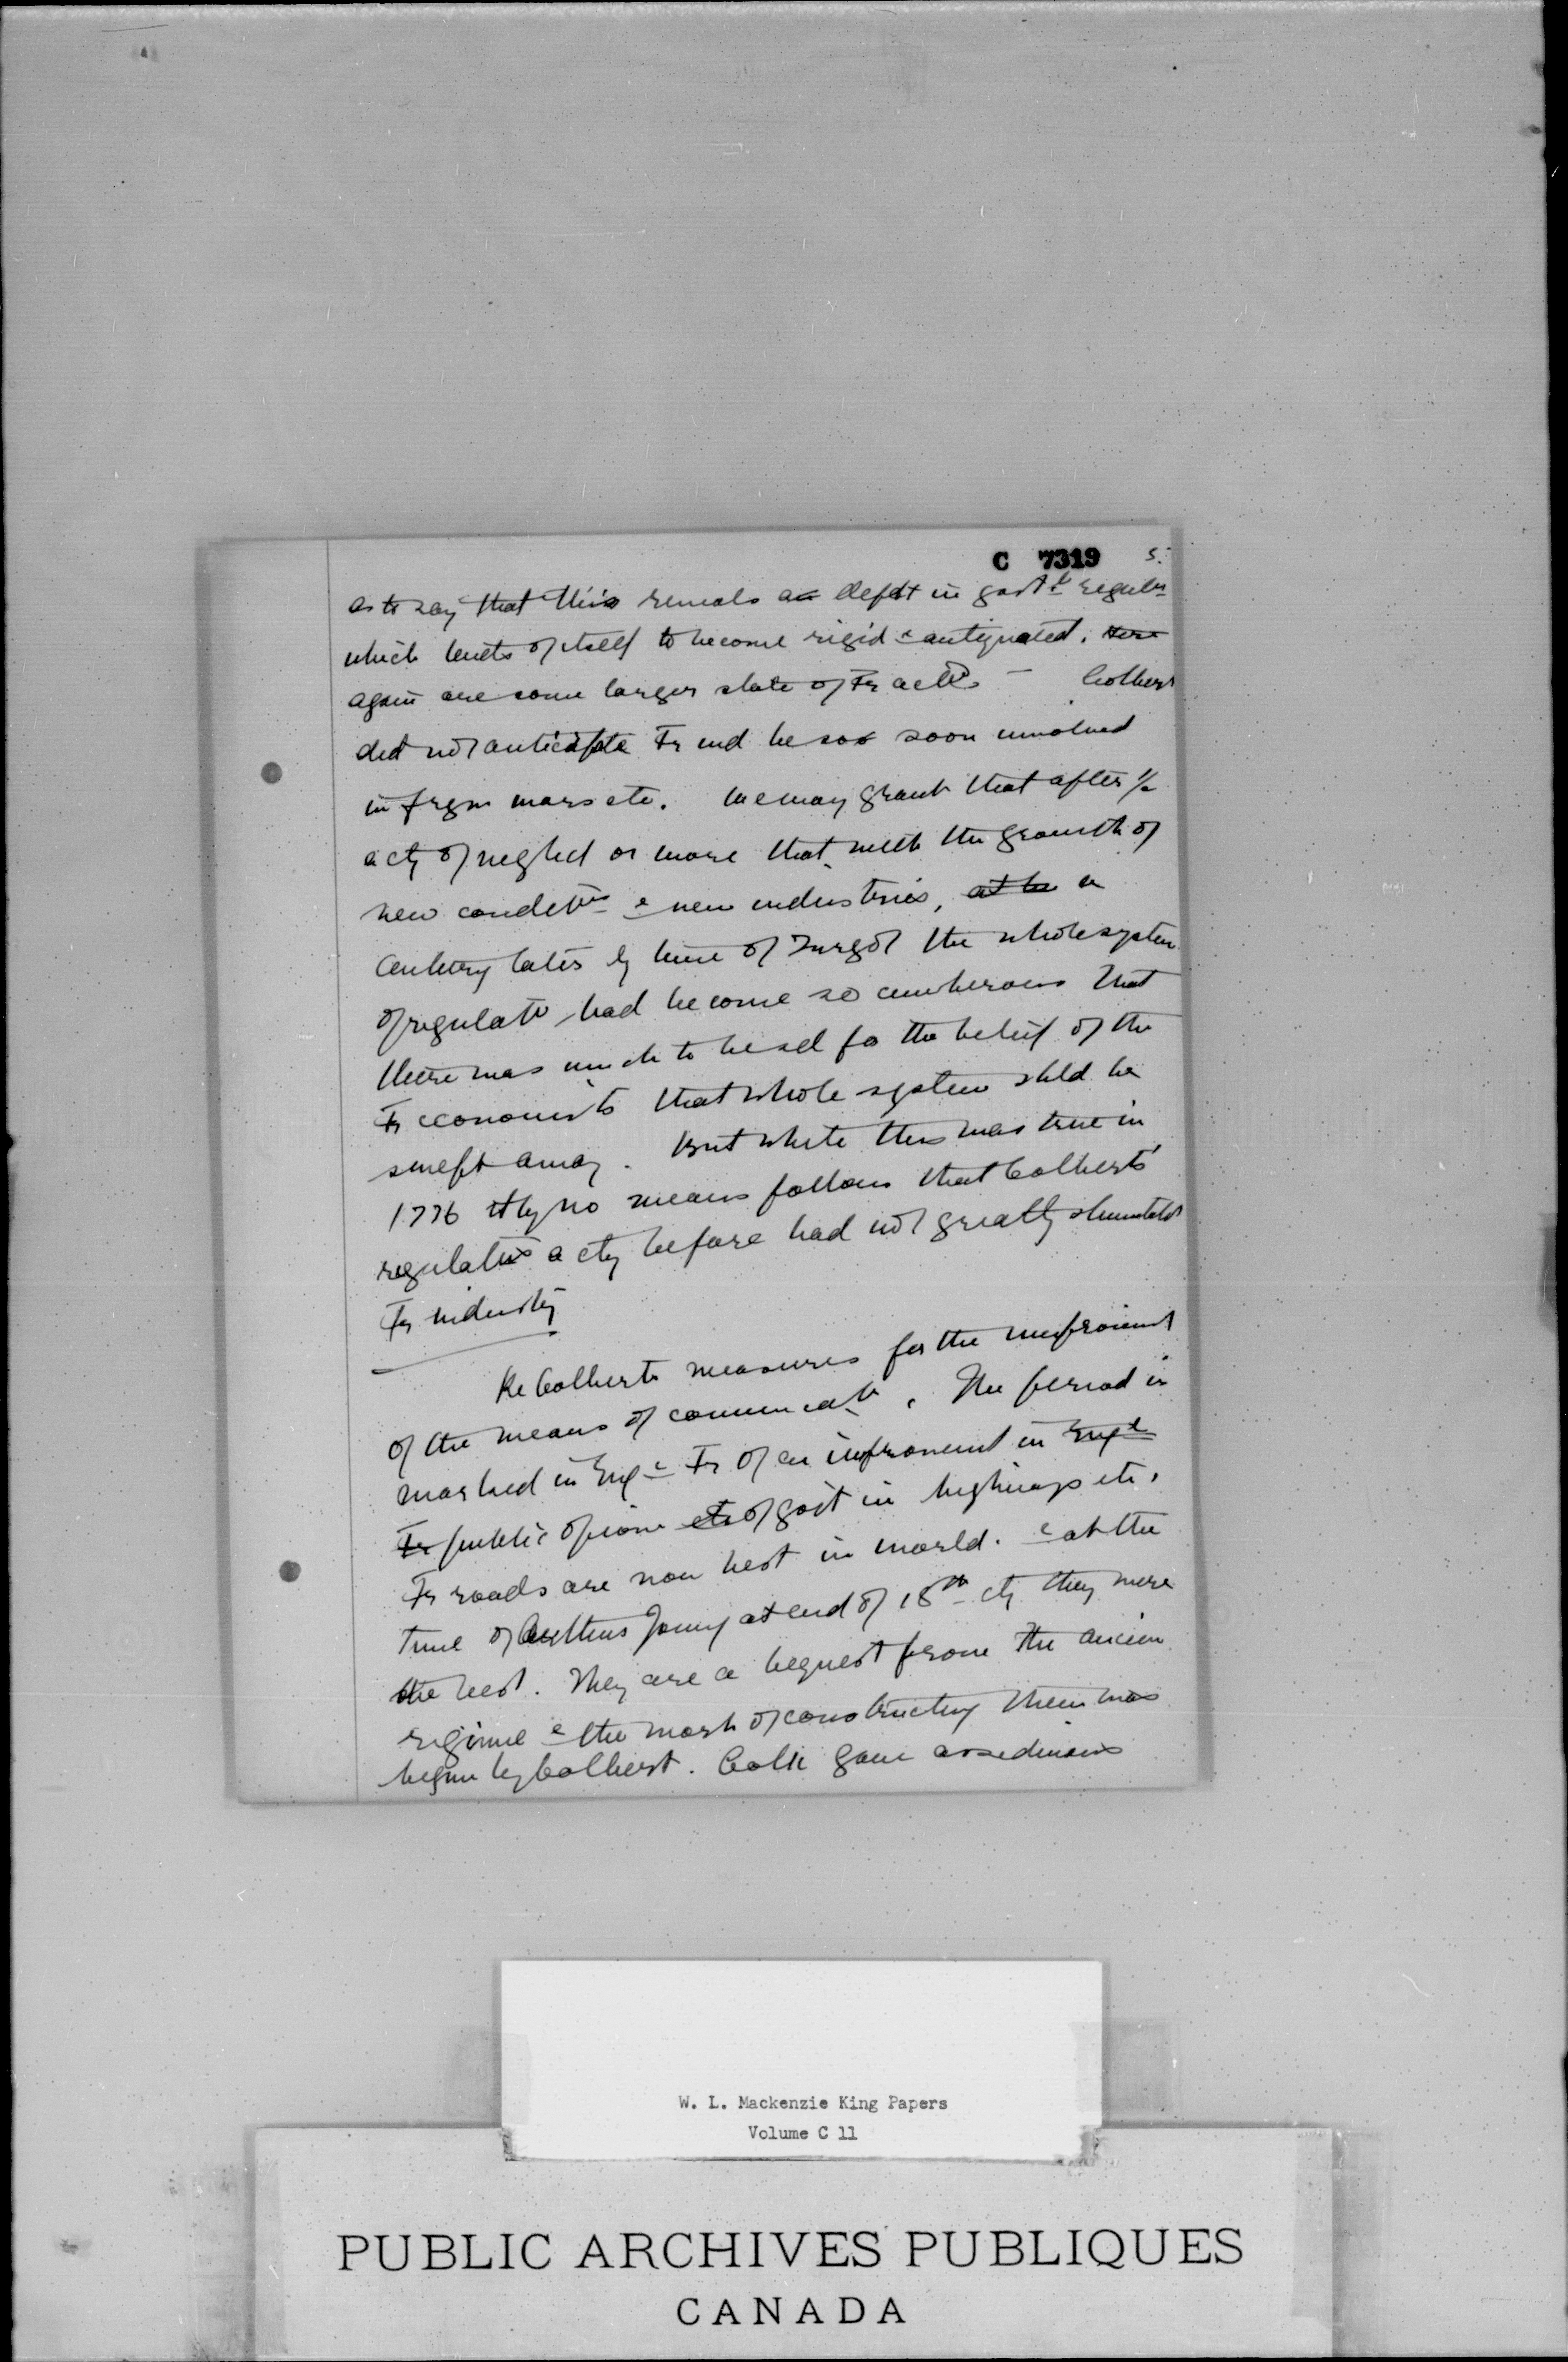 C 7319 5.
as to say that this reveals a defect in govt'l regulatn
which tends of itself to become rigid & antiquated.
again are some larger state of Fr Colbert
did not anticipate Fr wd be so soon involved
in frgn wars etc. We may grant that after 1/2
a cty of neglect or more that with the growth of
new condit'ns & new industries, at the a
century later by time of Turgot the whole system
of regulatn had become so cumberous that
there was much to be sd for the belief of the
Fr economists that whole system shld be
swept away. But while this was true in
1776 it by no means follows that Colbert's
regulatns a cty before had not greatly stimulated
Fr industry
Re Colbert's measures for the improvement
of the means of communicatn. The period is
marked in Eng & Fr of an improvement in Engld
Fr public of govt in highways etc.
Fr roads are now best in world. & at the
time of Arthur Young at end of 18th cty they were
the best. They are a bequest from the ancien
regime & the work of constructing them was
begun by Colbert. Colb gave assiduous
W. L. Mackenzie King Papers
Volume C 11
PUBLIC ARCHIVES PUBLIQUES
CANADA